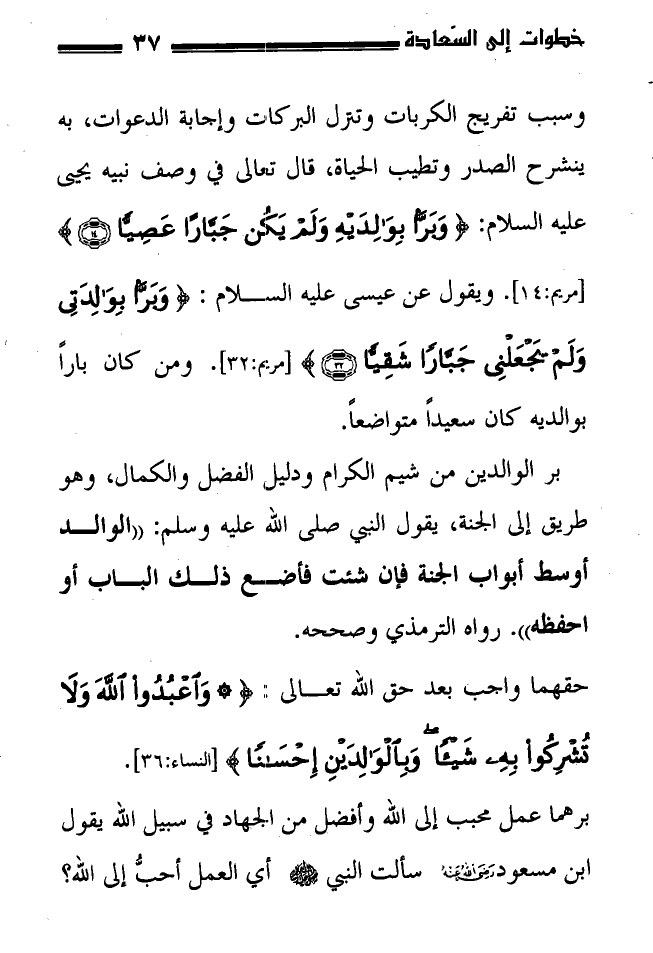 خطوات إلى السعادة ٣٧
وسبب تفريج الكربات وتنزل البركات وإجابة الدعوات، به
ينشرح الصدر وتطيب الحياة، قال تعالى في وصف نبيه يحيى
عليه السلام: ﴿ وَبَرًّۢا بِوَٰلِدَيْهِ وَلَمْ يَكُن جَبَّارًا عَصِيًّا ١٤ ﴾
[مريم:١٤]. ويقول عن عيسى عليه الســلام : ﴿ وَبَرًّۢا بِوَٰلِدَتِى
وَلَمْ يَجْعَلْنِى جَبَّارًا شَقِيًّا ٣٢ ﴾ [مريم:٣٢]. ومن كان باراً
بوالديه كان سعيداً متواضعاً.
بر الوالدين من شيم الكرام ودليل الفضل والكمال، وهو
طريق إلى الجنة، يقول النبي صلى الله عليه وسلم: ((الوالـد
أوسط أبواب الجنة فإن شئت فأضـع ذلـك البـاب أو
احفظه)). رواه الترمذي وصححه.
حقهما واجب بعد حق الله تعـالى : ﴿ ۞ وَٱعْبُدُوا۟ ٱللَّهَ وَلَا
تُشْرِكُوا۟ بِهِۦ شَيْـًٔا ۖ وَبِٱلْوَٰلِدَيْنِ إِحْسَـٰنًا ﴾ [النساء:٣٦].
برهما عمل محبب إلى الله وأفضل من الجهاد في سبيل الله يقول
ابن مسعود رَضِيَ اللهُ عَنْهُ سألت النبي ﷺ أي العمل أحبُّ إلى الله؟